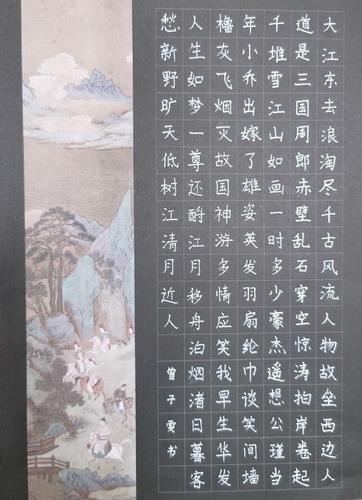 大江东去浪淘尽千古风流人物故垒西边人
道是三国周郎赤壁乱石穿空惊涛拍岸卷起
千堆雪江山如画一时多少豪杰遥想公瑾当
年小乔出嫁了雄姿英发羽扇纶巾谈笑间墙
橹灰飞烟灭故国神游多情应笑我早生华发
人生如梦一尊还酹江月移舟泊烟渚日暮客
愁新野旷天低树江清月近人
曾子书